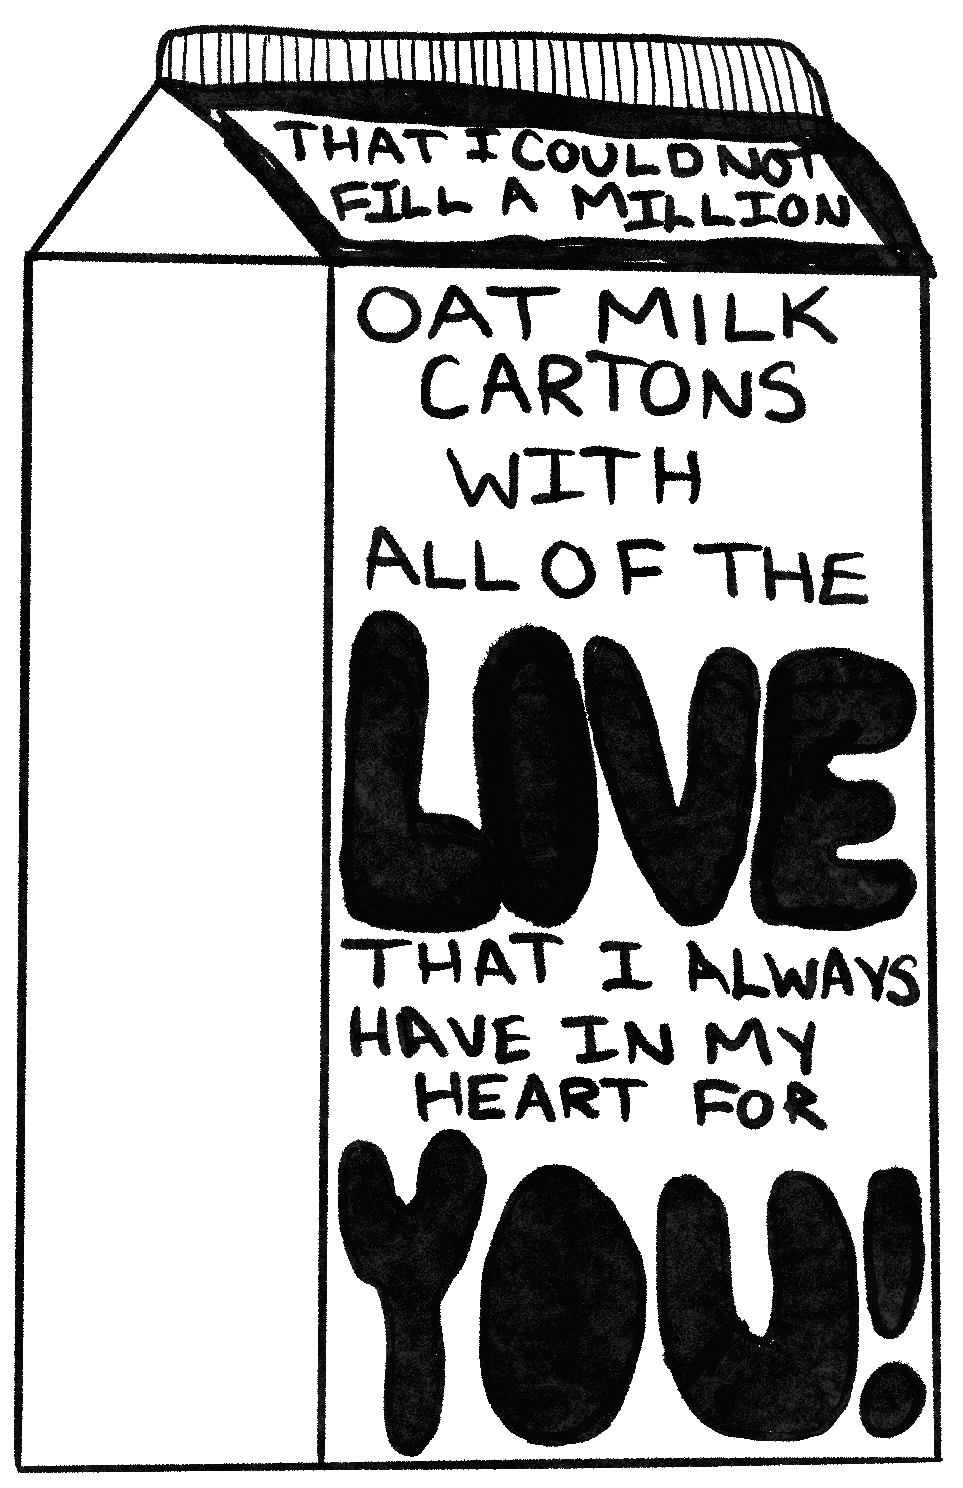 THAT I COULD NOT
FILL A MILLION
OAT MILK
CARTONS
WITH
ALL OF THE
LOVE
THAT I ALWAYS
HAVE IN MY
HEART FOR
YOU!